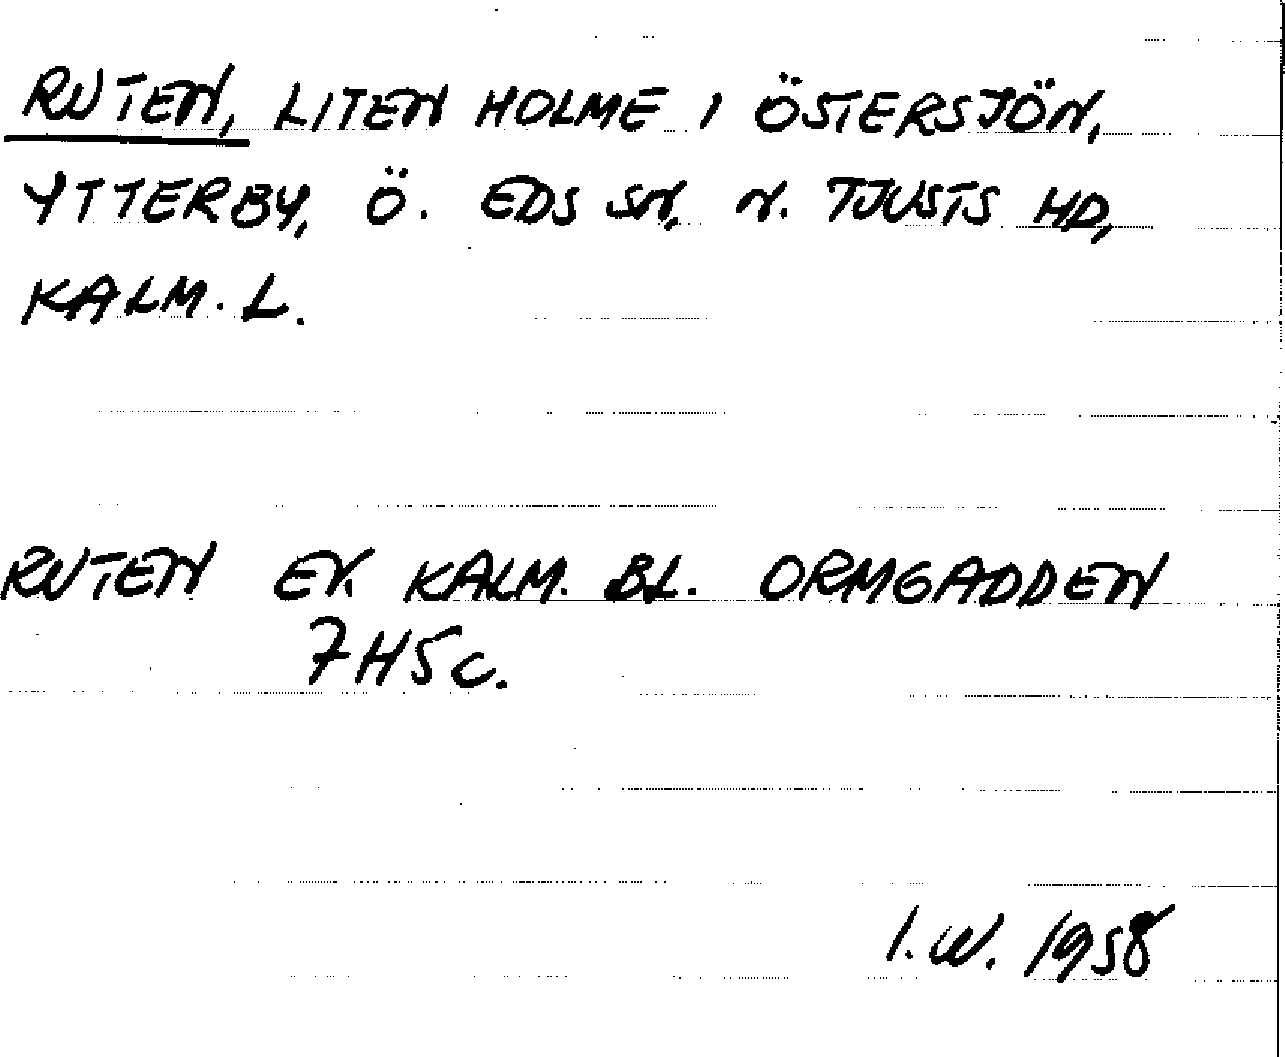 RUTEN, LITEN HOLME I ÖSTERSJÖN,
YTTERBY, Ö. EDS SN, N. TJUSTS HD,
KALM. L.
RUTEN EK. KALM. BL. ORMGADDEN
7H5c.
I.W. 1958